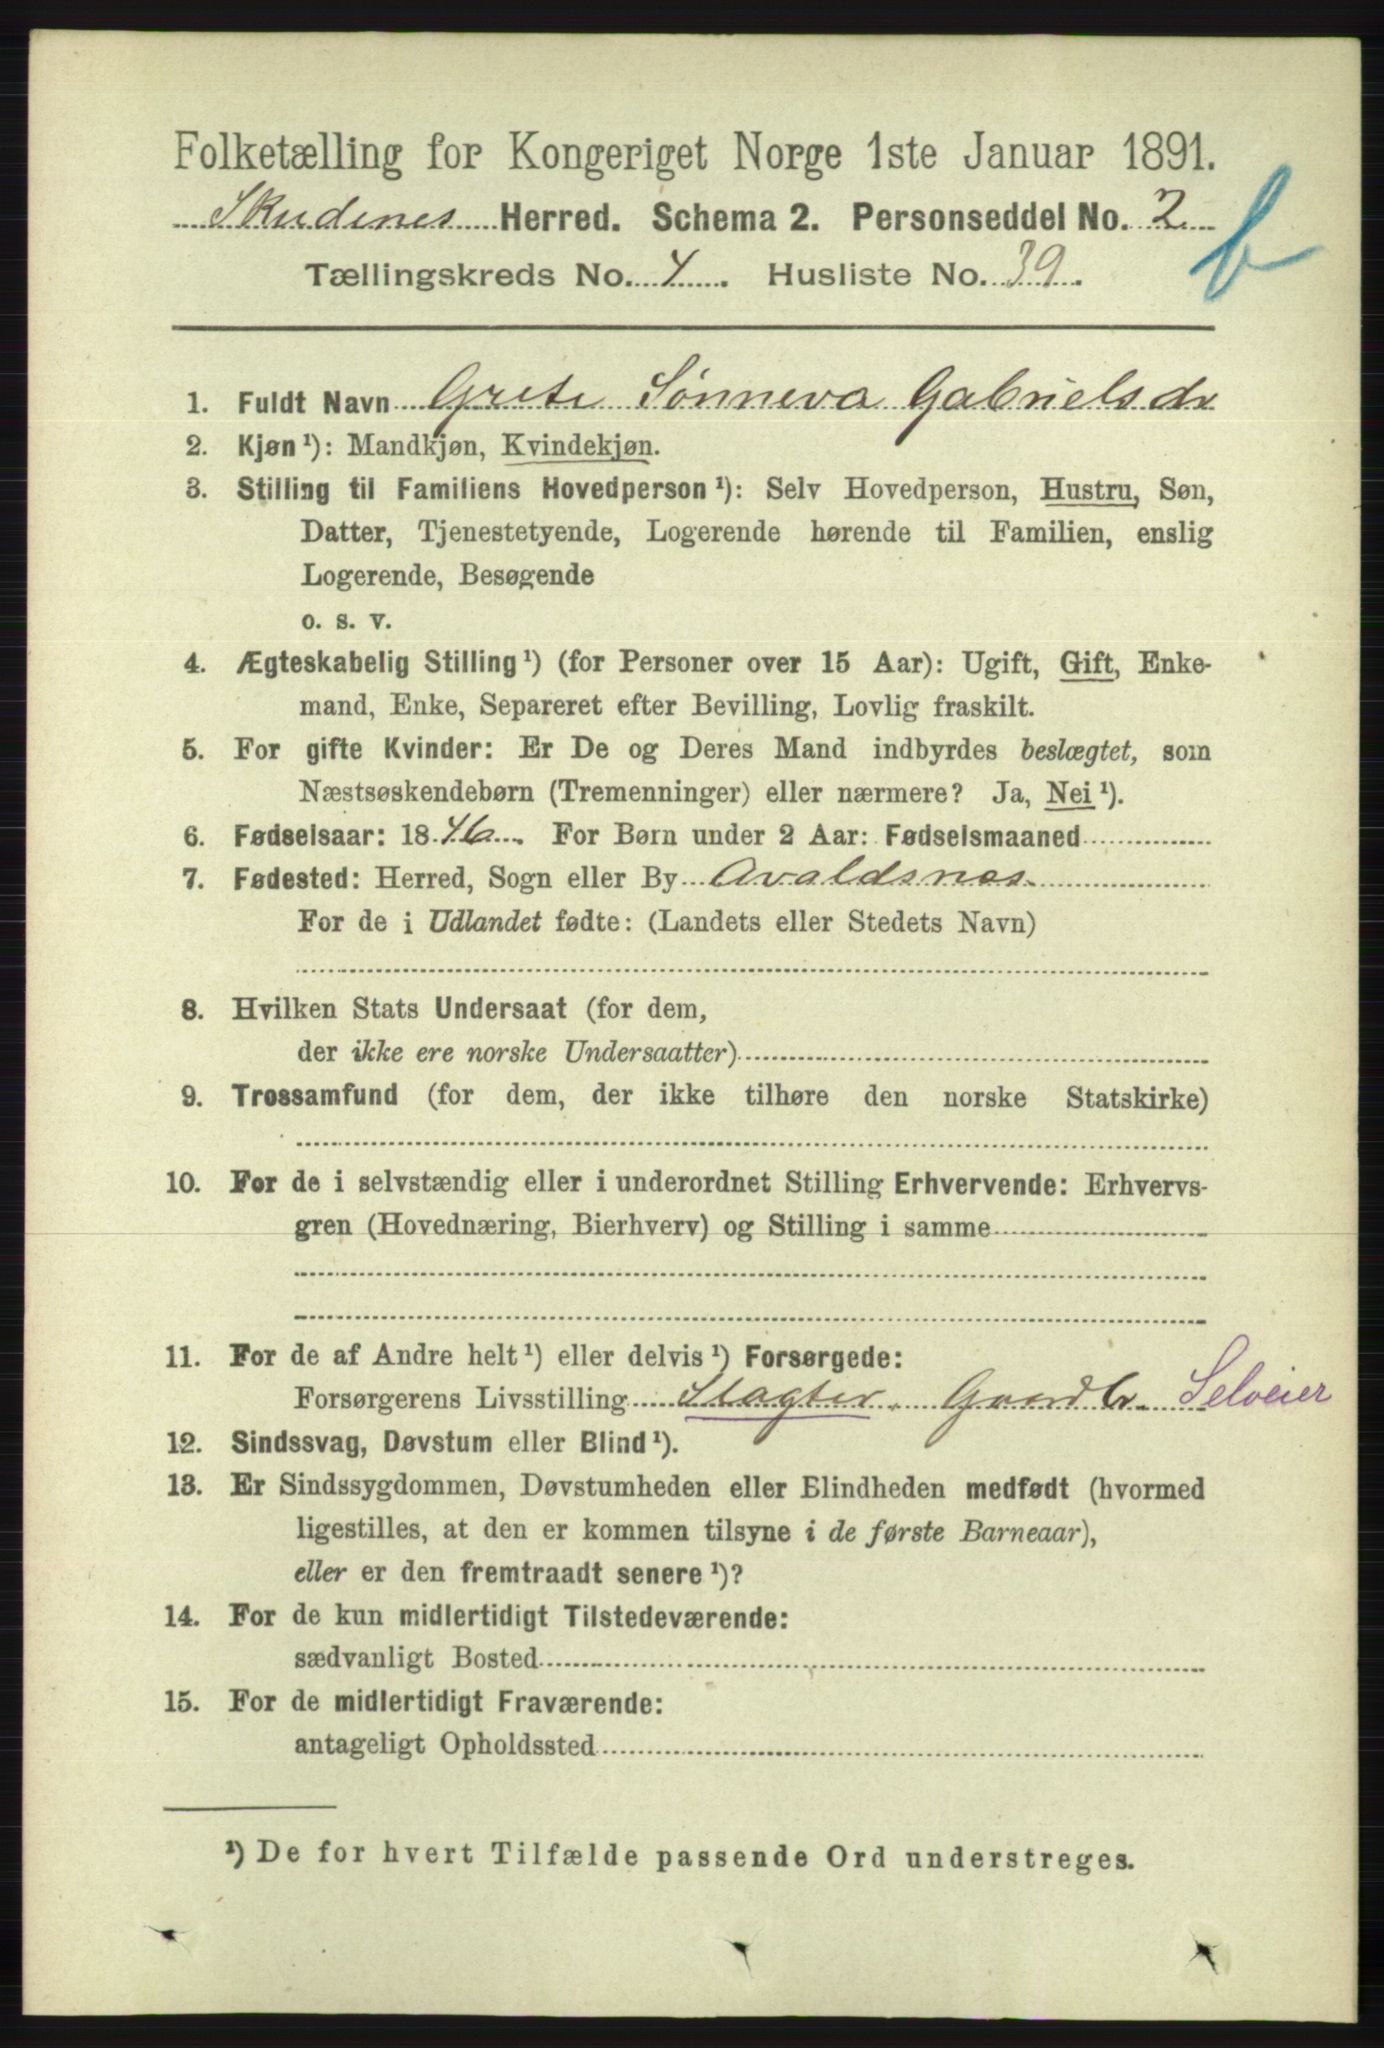 Folketælling for Kongeriget Norge 1ste Januar 1891.
Skudenes Herred. Schema 2. Personseddel No. 2
b
Tællingskreds No. 4. Husliste No. 39.
1. Fuldt Navn Grete Sønneva Gabrielsdr
2. Kjøn¹): Mandkjøn, Kvindekjøn.
3. Stilling til Familiens Hovedperson¹): Selv Hovedperson, Hustru, Søn,
Datter, Tjenestetyende, Logerende hørende til Familien, enslig
Logerende, Besøgende
o. s. v.
4. Ægteskabelig Stilling¹) (for Personer over 15 Aar): Ugift, Gift, Enke-
mand, Enke, Separeret efter Bevilling, Lovlig fraskilt.
5. For gifte Kvinder: Er De og Deres Mand indbyrdes beslægtet, som
Næstsøskendebørn (Tremenninger) eller nærmere? Ja, Nei¹).
6. Fødselsaar: 1846. For Børn under 2 Aar: Fødselsmaaned
7. Fødested: Herred, Sogn eller By Avaldsnes
For de i Udlandet fødte: (Landets eller Stedets Navn)
8. Hvilken Stats Undersaat (for dem,
der ikke ere norske Undersaatter)
9. Trossamfund (for dem, der ikke tilhøre den norske Statskirke)
10. For de i selvstændig eller i underordnet Stilling Erhvervende: Erhvervs-
gren (Hovednæring, Bierhverv) og Stilling i samme
11. For de af Andre helt¹) eller delvis¹) Forsørgede:
Forsørgerens Livsstilling Slagter. Gaardbr. Selveier
12. Sindssvag, Døvstum eller Blind¹).
13. Er Sindssygdommen, Døvstumheden eller Blindheden medfødt (hvormed
ligestilles, at den er kommen tilsyne i de første Barneaar),
eller er den fremtraadt senere¹)?
14. For de kun midlertidigt Tilstedeværende:
sædvanligt Bosted
15. For de midlertidigt Fraværende:
antageligt Opholdssted
¹) De for hvert Tilfælde passende Ord understreges.